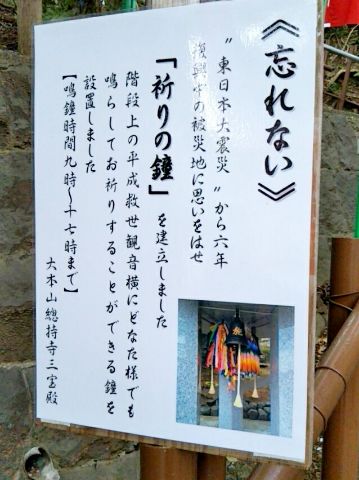 《忘れない》
〝東日本大震災〟から六年
復興中の被災地に思いをはせ
「祈りの鐘」を建立しました
階段上の平成救世観音横にどなた様でも
鳴らしてお祈りすることができる鐘を
設置しました
【鳴鐘時間九時〜十七時まで】
大本山總持寺三宝殿